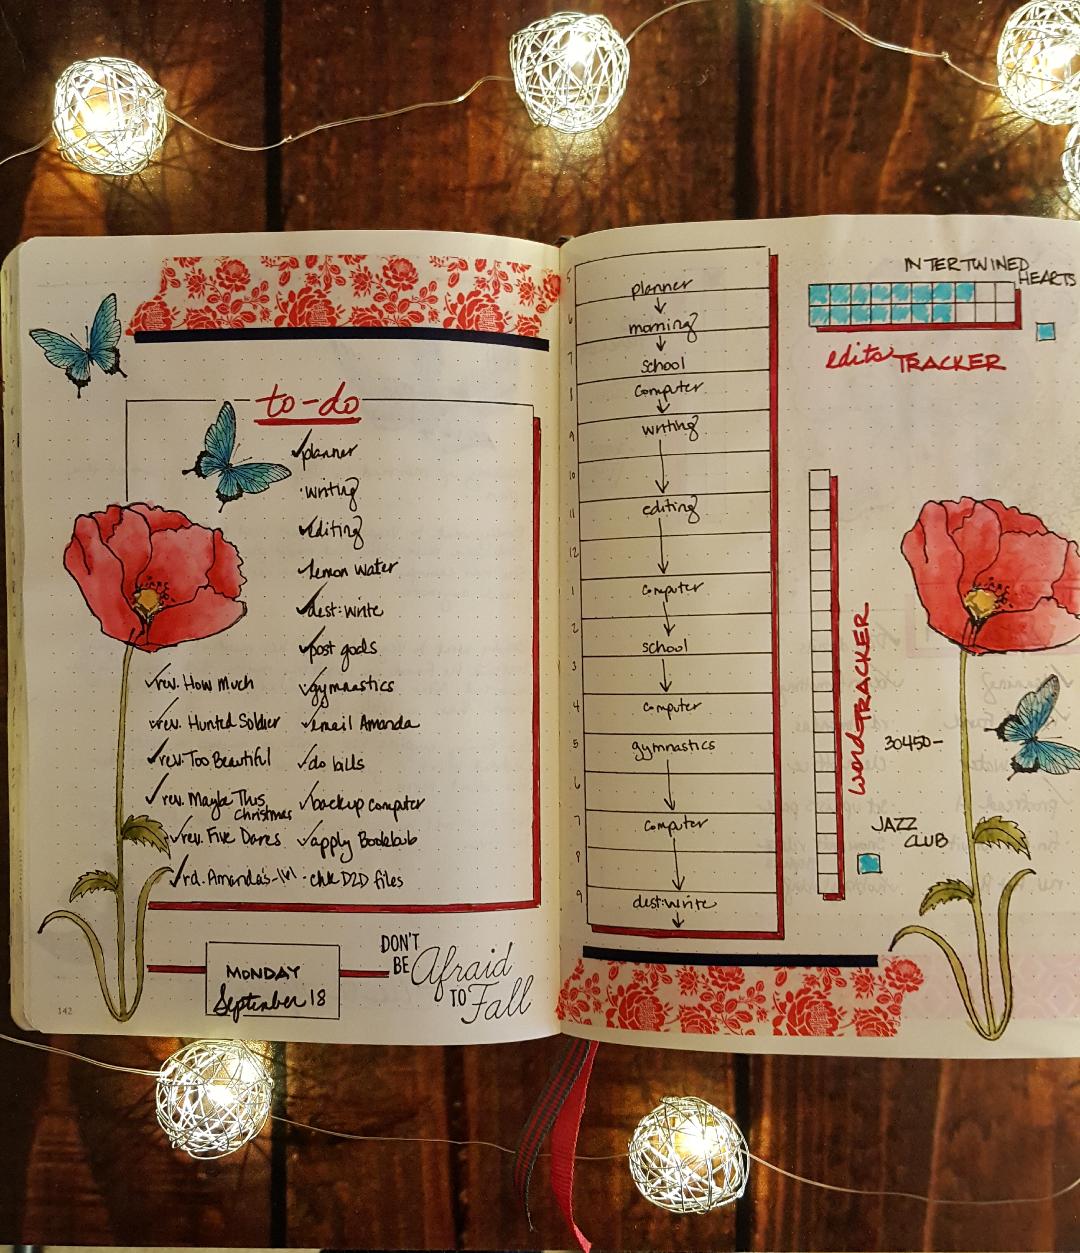 to-do
planner
writing
editing
lemon water
dest:write
post goals
rev. How Much
gymnastics
rev. Hunted Soldier
email Amanda
rev. Too Beautiful
do bills
rev. Maybe This
Christmas
backup computer
rev. Five Dares
apply Bookbub
rd. Amanda's
chk D2D files
MONDAY
September 18
DON'T
BE Afraid
TO Fall
142
5
planner
6
morning
7
school
8
computer
9
writing
10
11
editing
12
1
computer
2
school
3
4
computer
5
gymnastics
6
7
computer
8
9
dest:write
INTERTWINED
HEARTS
edits TRACKER
word TRACKER
30450-
JAZZ
CLUB